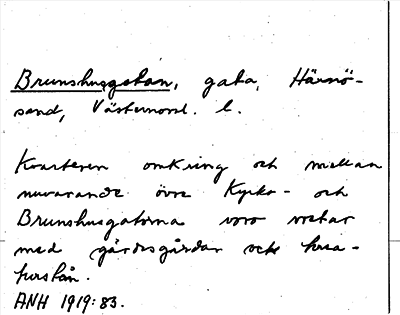 Brunshusgatan, gata, Härnö-
sand, Västernorrl. l.
Kvarteren omkring och mellan
nuvarande övre Kyrko- och
Brunshusgatorna voro
med gärdsgårdar och
ANH 1919:83.